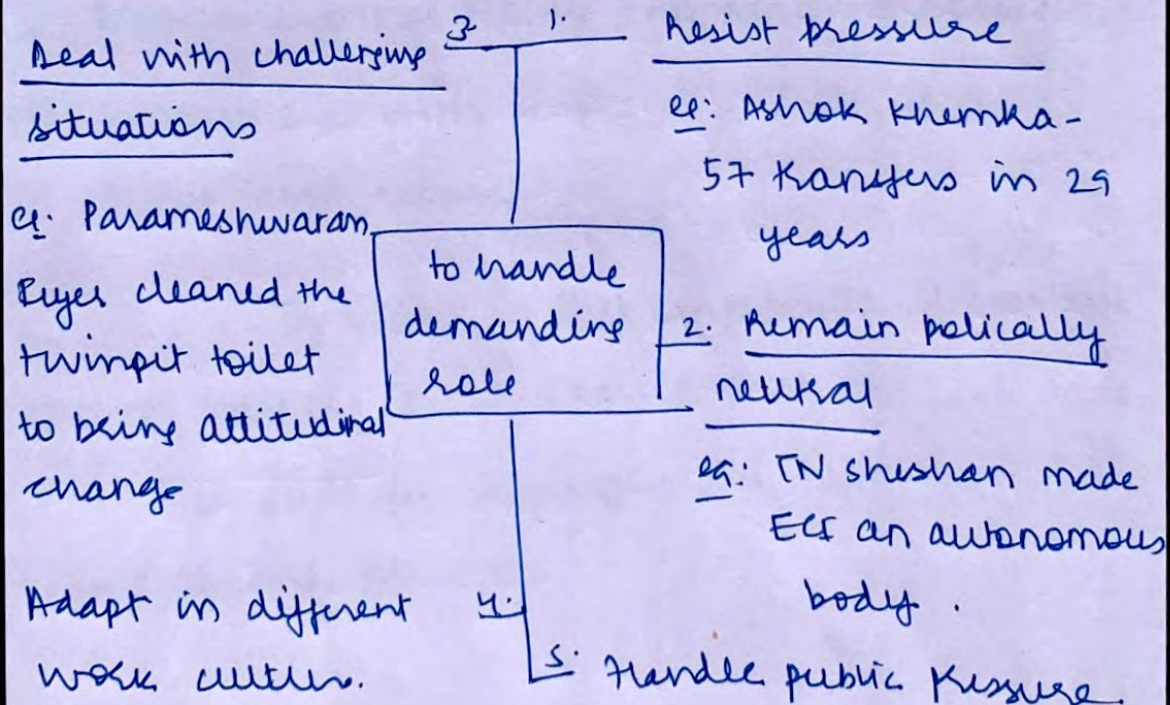 1. Resist pressure
eg: Ashok Khemka -
57 transfers in 29
years
to handle
demanding
role
2. Remain polically
neutral
eg: TN sheshan made
ECI an autonomous
body .
3. Deal with challenging
situations
eg. Parameshwaran
Iyer cleaned the
twinpit toilet
to bring attitudinal
change
4. Adapt in different
work culture.
5. Handle public pressure.